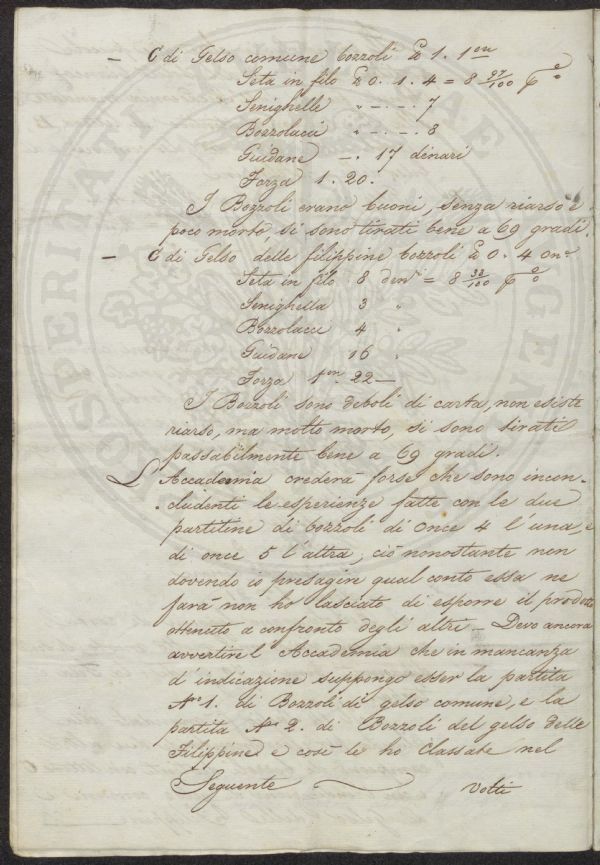 – C di Gelso comune bozzoli ℔ 1. 1 on:
Seta in filo ℔ 0. 1. 4 = 8 97/100 p %
Senighelle " – . – . 7
Bozzolacci " – . – . 8
Guidane – . 17 denari
Forza 1. 20.
I Bozzoli erano buoni, senza riarso e
poco morto, si sono tirati bene a 69 gradi.
– C di Gelso delle filippine bozzoli ℔ 0. 4 on:
Seta in filo 8 den: = 8 33/100 p %
Senighella 3 "
Bozzolacci 4 "
Guidane 16 "
Forza 1 on. 22 –
I Bozzoli sono deboli di carta, non esiste
riarso, ma molto morto, si sono tirati
passabilmente bene a 69 gradi.
L'Accademia crederà forse che sono incon-
cludenti le esperienze fatte con le due
partitine di bozzoli di once 4 l'una, e
di once 5 l'altra; ciò nonostante non
dovendo io presagire qual conto essa ne
farà non ho lasciato di esporre il prodotto
ottenuto a confronto degli altri – Devo ancora
avvertire l'Accademia che in mancanza
d'indicazione suppongo esser la partita
N° 1. di Bozzoli di gelso comune, e la
partita N° 2. di Bozzoli del gelso delle
Filippine e così le ho classate nel
Seguente Volti
PROSPERITATI PUBLICAE AUGENDAE